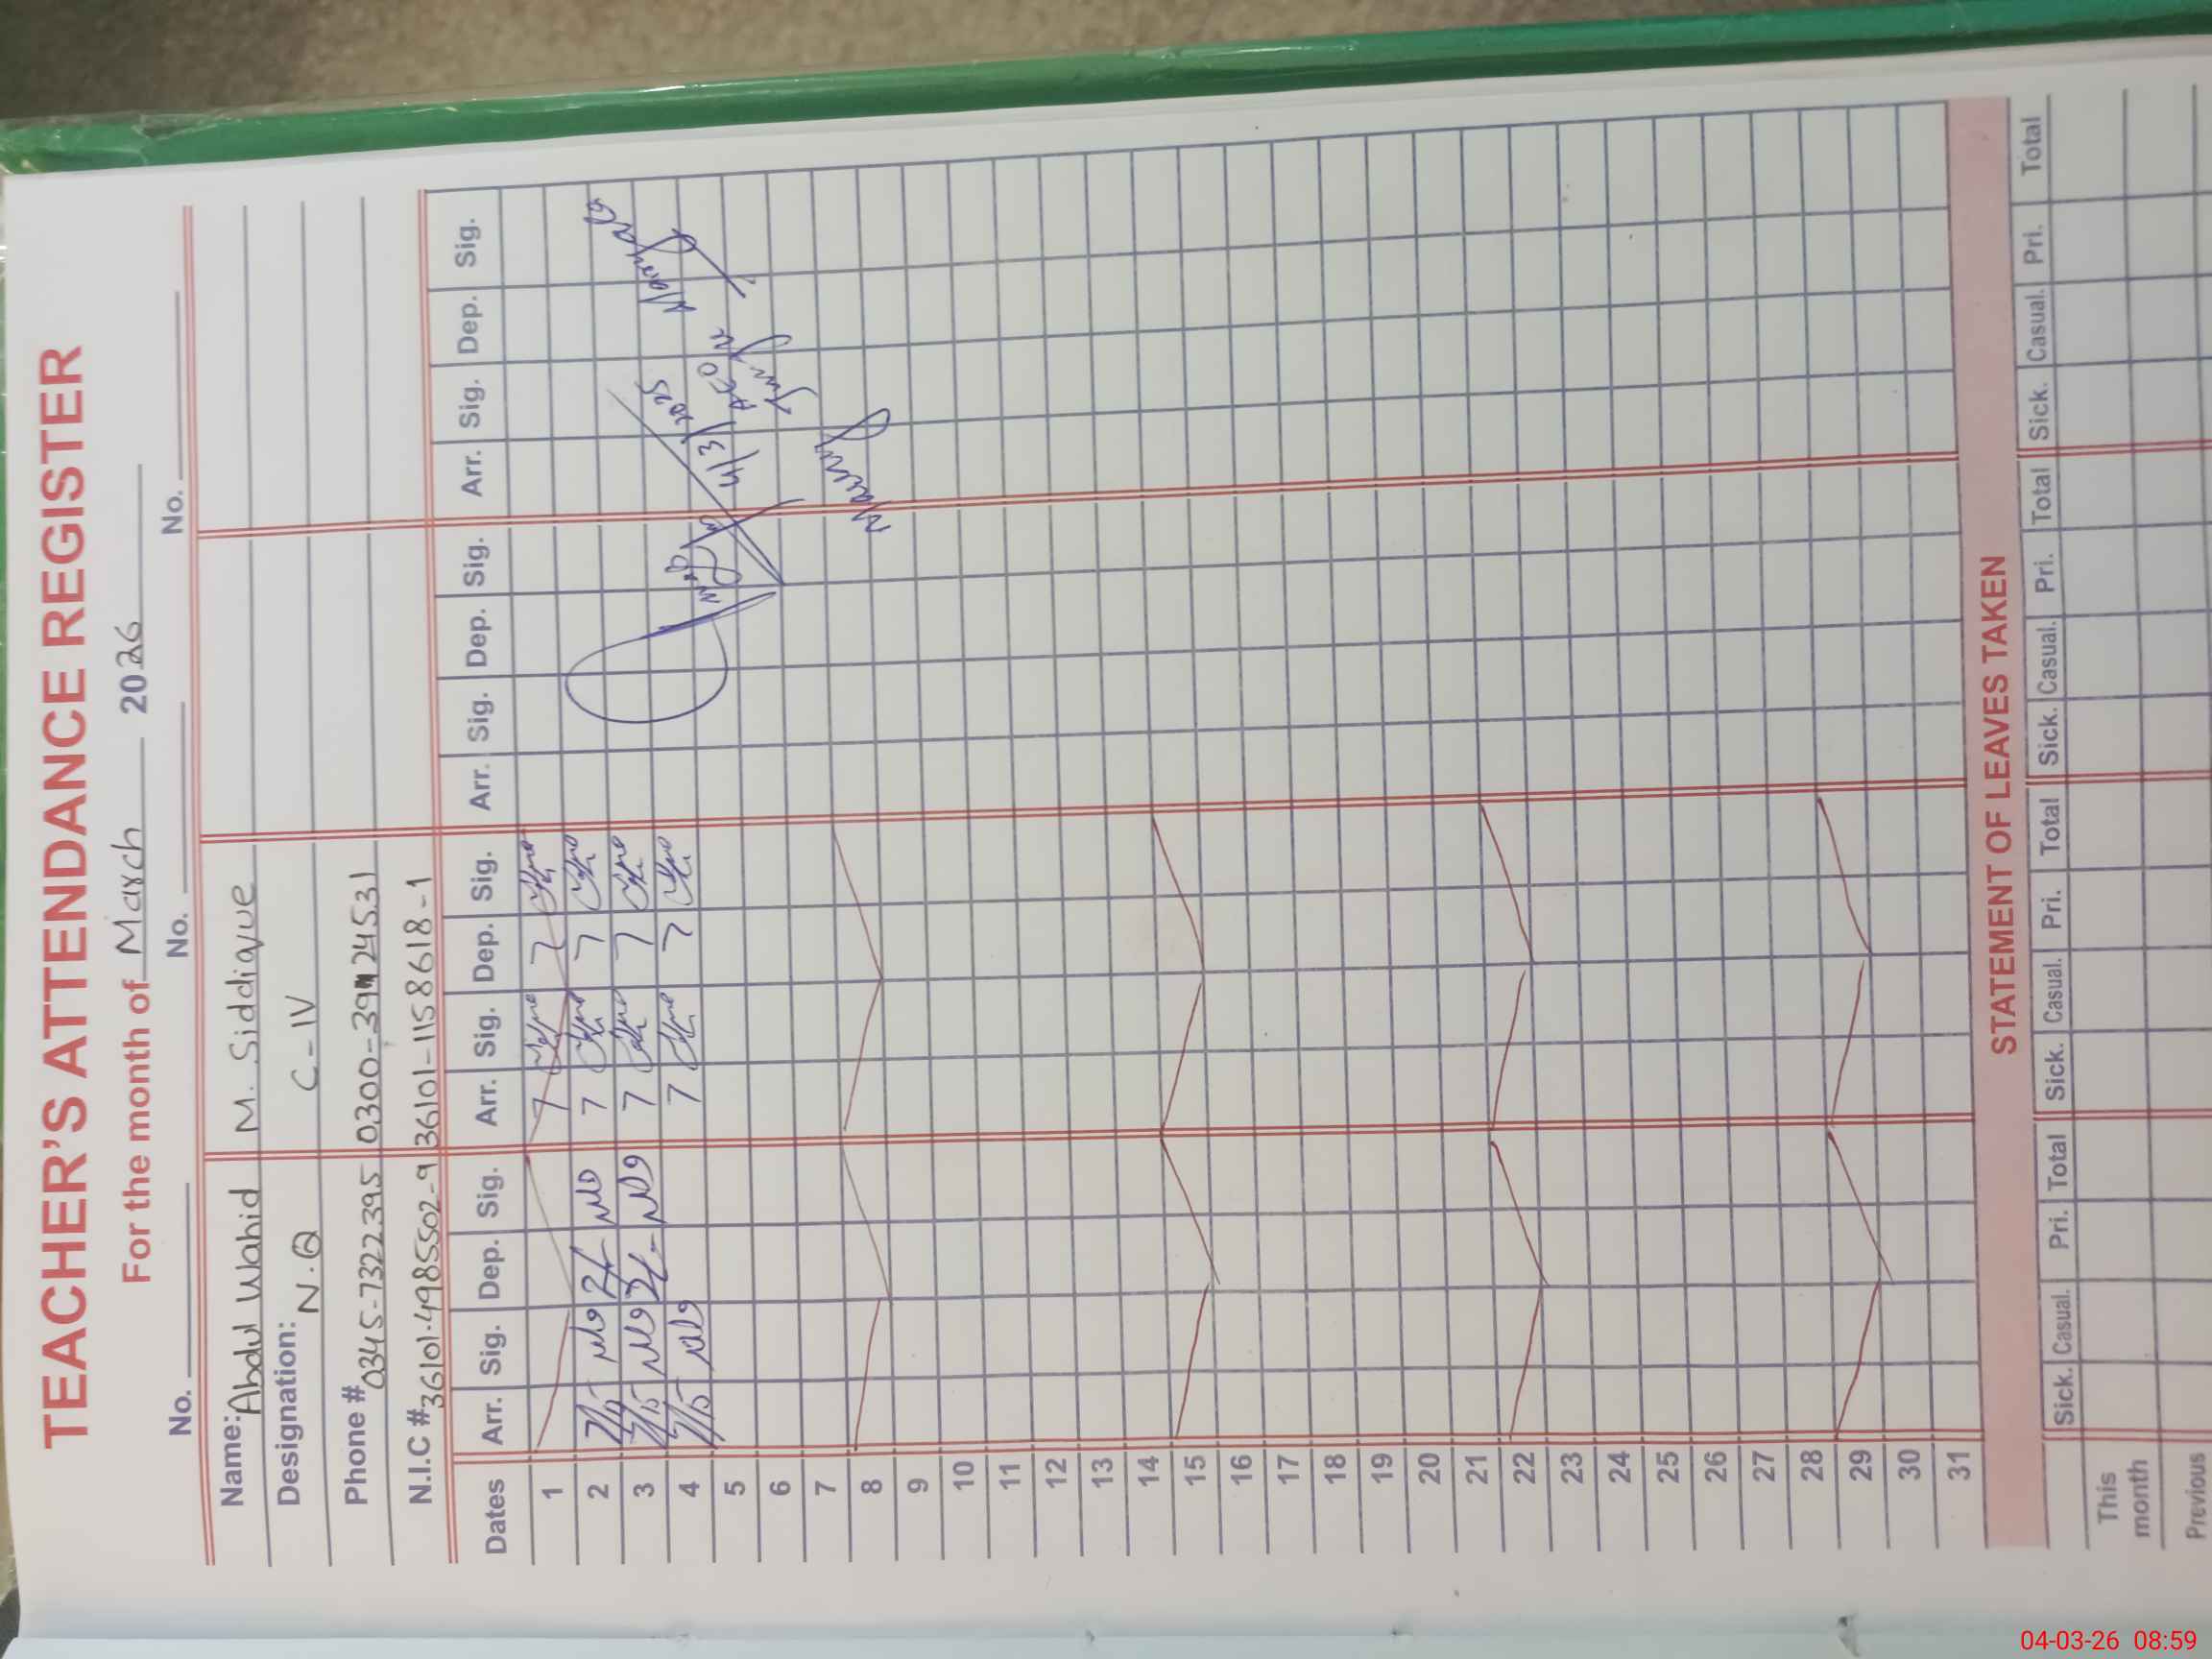 TEACHER'S ATTENDANCE REGISTER
For the month of March 2026
No. No. No. No.
Name: Abdul Wahid M. Siddique
Designation: N.Q C-IV
Phone # 0345-7322395 0300-3924531
N.I.C # 36101-4985502-9 36101-1158618-1
Dates Arr. Sig. Dep. Sig. Arr. Sig. Dep. Sig. Arr. Sig. Dep. Sig. Arr. Sig. Dep. Sig.
1 7 7
2 7/15 7 7
3 7/15 7 7
4 7/15 7 7
5
6
7
8
9
10
11
12
13
14
15
16
17
18
19
20
21
22
23
24
25
26
27
28
29
30
31
STATEMENT OF LEAVES TAKEN
Sick. Casual. Pri. Total Sick. Casual. Pri. Total Sick. Casual. Pri. Total Sick. Casual. Pri. Total
This month
Previous
04-03-26 08:59